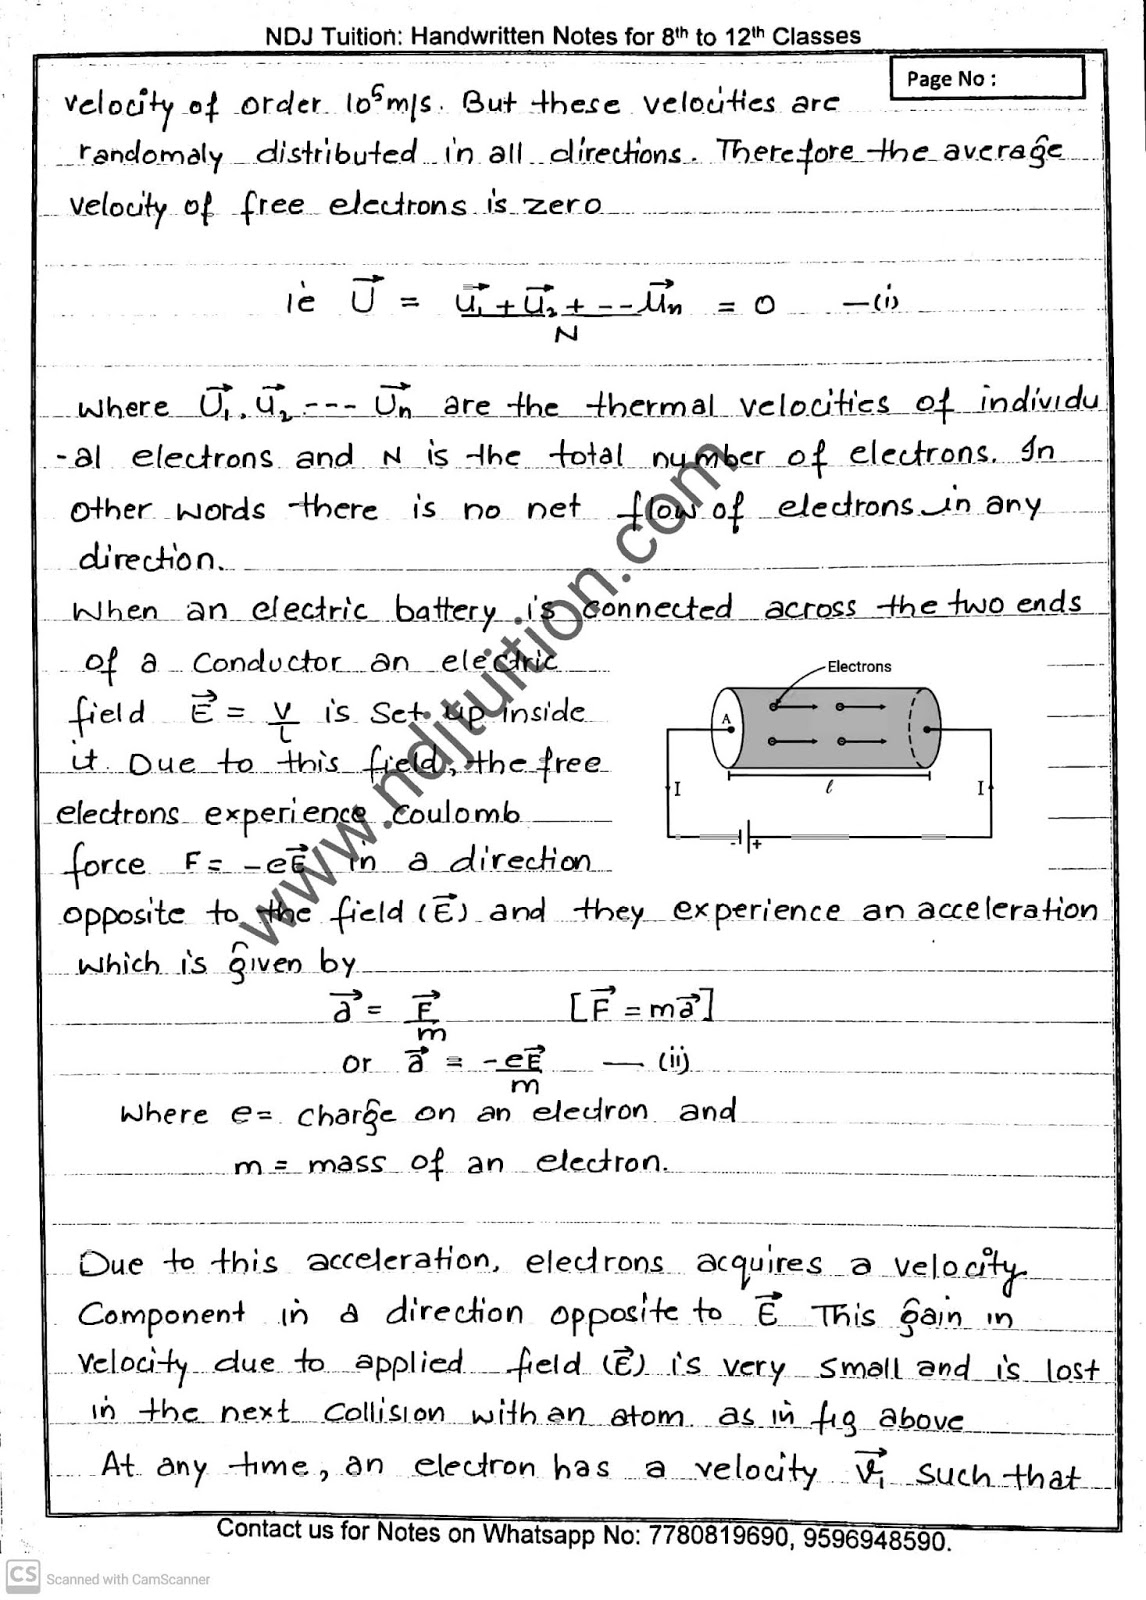 NDJ Tuition: Handwritten Notes for 8th to 12th Classes
Page No :
velocity of order 10⁵m/s. But these velocities are
randomaly distributed in all directions. Therefore the average
velocity of free electrons is zero
ie U⃗ = (u⃗₁ + u⃗₂ + --- u⃗n)/N = 0 —(i)
where U⃗₁, u⃗₂ --- U⃗n are the thermal velocities of individu
-al electrons and N is the total number of electrons. In
other words there is no net flow of electrons in any
direction.
When an electric battery is connected across the two ends
of a conductor an electric
field E⃗ = V/l is set up inside
it. Due to this field, the free
electrons experience coulomb
force F = -eE⃗ in a direction
Electrons
A
l
I
I
- +
opposite to the field (E⃗) and they experience an acceleration
which is given by
a⃗ = F⃗/m [F⃗ = ma⃗]
or a⃗ = -eE⃗/m — (ii)
where e = charge on an electron and
m = mass of an electron.
Due to this acceleration, electrons acquires a velocity
Component in a direction opposite to E⃗ This gain in
velocity due to applied field (E⃗) is very small and is lost
in the next collision with an atom as in fig above
At any time, an electron has a velocity v⃗₁ such that
www.ndjtuition.com
Contact us for Notes on Whatsapp No: 7780819690, 9596948590.
CS Scanned with CamScanner